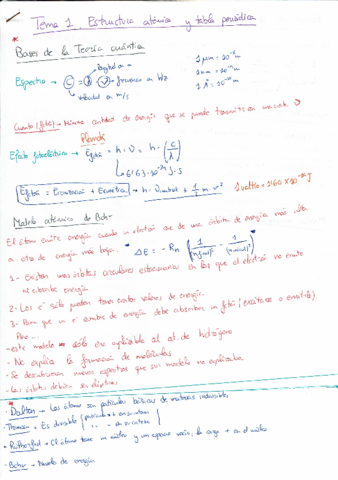 Tema 1. Estructura atómica y tabla periódica
Bases de la Teoría cuántica
longitud en m
Espectro → C = λ · ν → frecuencia en Hz
velocidad en m/s
1 μm = 10⁻⁶ m
1 nm = 10⁻⁹ m
1 Å = 10⁻¹⁰ m
Cuanto (fotón) → Mínima cantidad de energía que se puede transmitir en una onda.
Planck
Efecto fotoeléctrico → Efotón = h · ν = h · (c/λ)
6'63·10⁻³⁴ J·s
Efotón = Eionización + Ecinética → h · νumbral + 1/2 m · v²
1 voltio = 1'60 × 10⁻¹⁹ J
Modelo atómico de Bohr
El átomo emite energía cuando un electrón cae de una órbita de energía más alta
a otra de energía más baja.
ΔE = - RH (1/(n final)² - 1/(n inicial)²)
1- Existen unas órbitas circulares estacionarias en las que el electrón no emite
ni absorbe energía
2- Los e⁻ sólo pueden tomar ciertos valores de energía.
3- Para que un e⁻ cambie de energía debe absorber un fotón (excitarse o emitirlo)
Pero...
- este modelo sólo era aplicable al at. de hidrógeno
- No explica la formación de moléculas
- Se descubrieron nuevos espectros que su modelo no explicaba
- Las órbitas debían ser elípticas
· Dalton → Los átomos son partículas básicas de materia indivisibles
· Thomson → Es divisible
· Rutherford → El átomo tiene un núcleo y un espacio vacío, la carga + en el núcleo
· Bohr → Niveles de energía